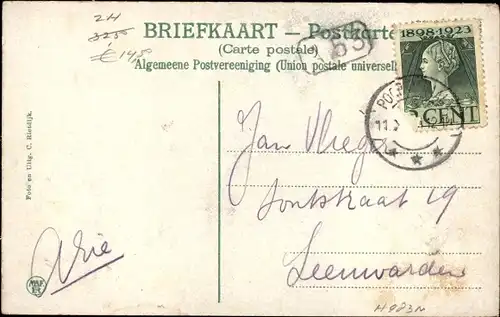 24
325
€14,5
BRIEFKAART — Postkarte
(Carte postale)
Algemeene Postvereeniging (Union postale universel
1898·1923
CENT
Foto en Uitg. C. Rietdijk.
Jan Vlieger
Lontstraat 19
Leeuwarden
Arie
H983N